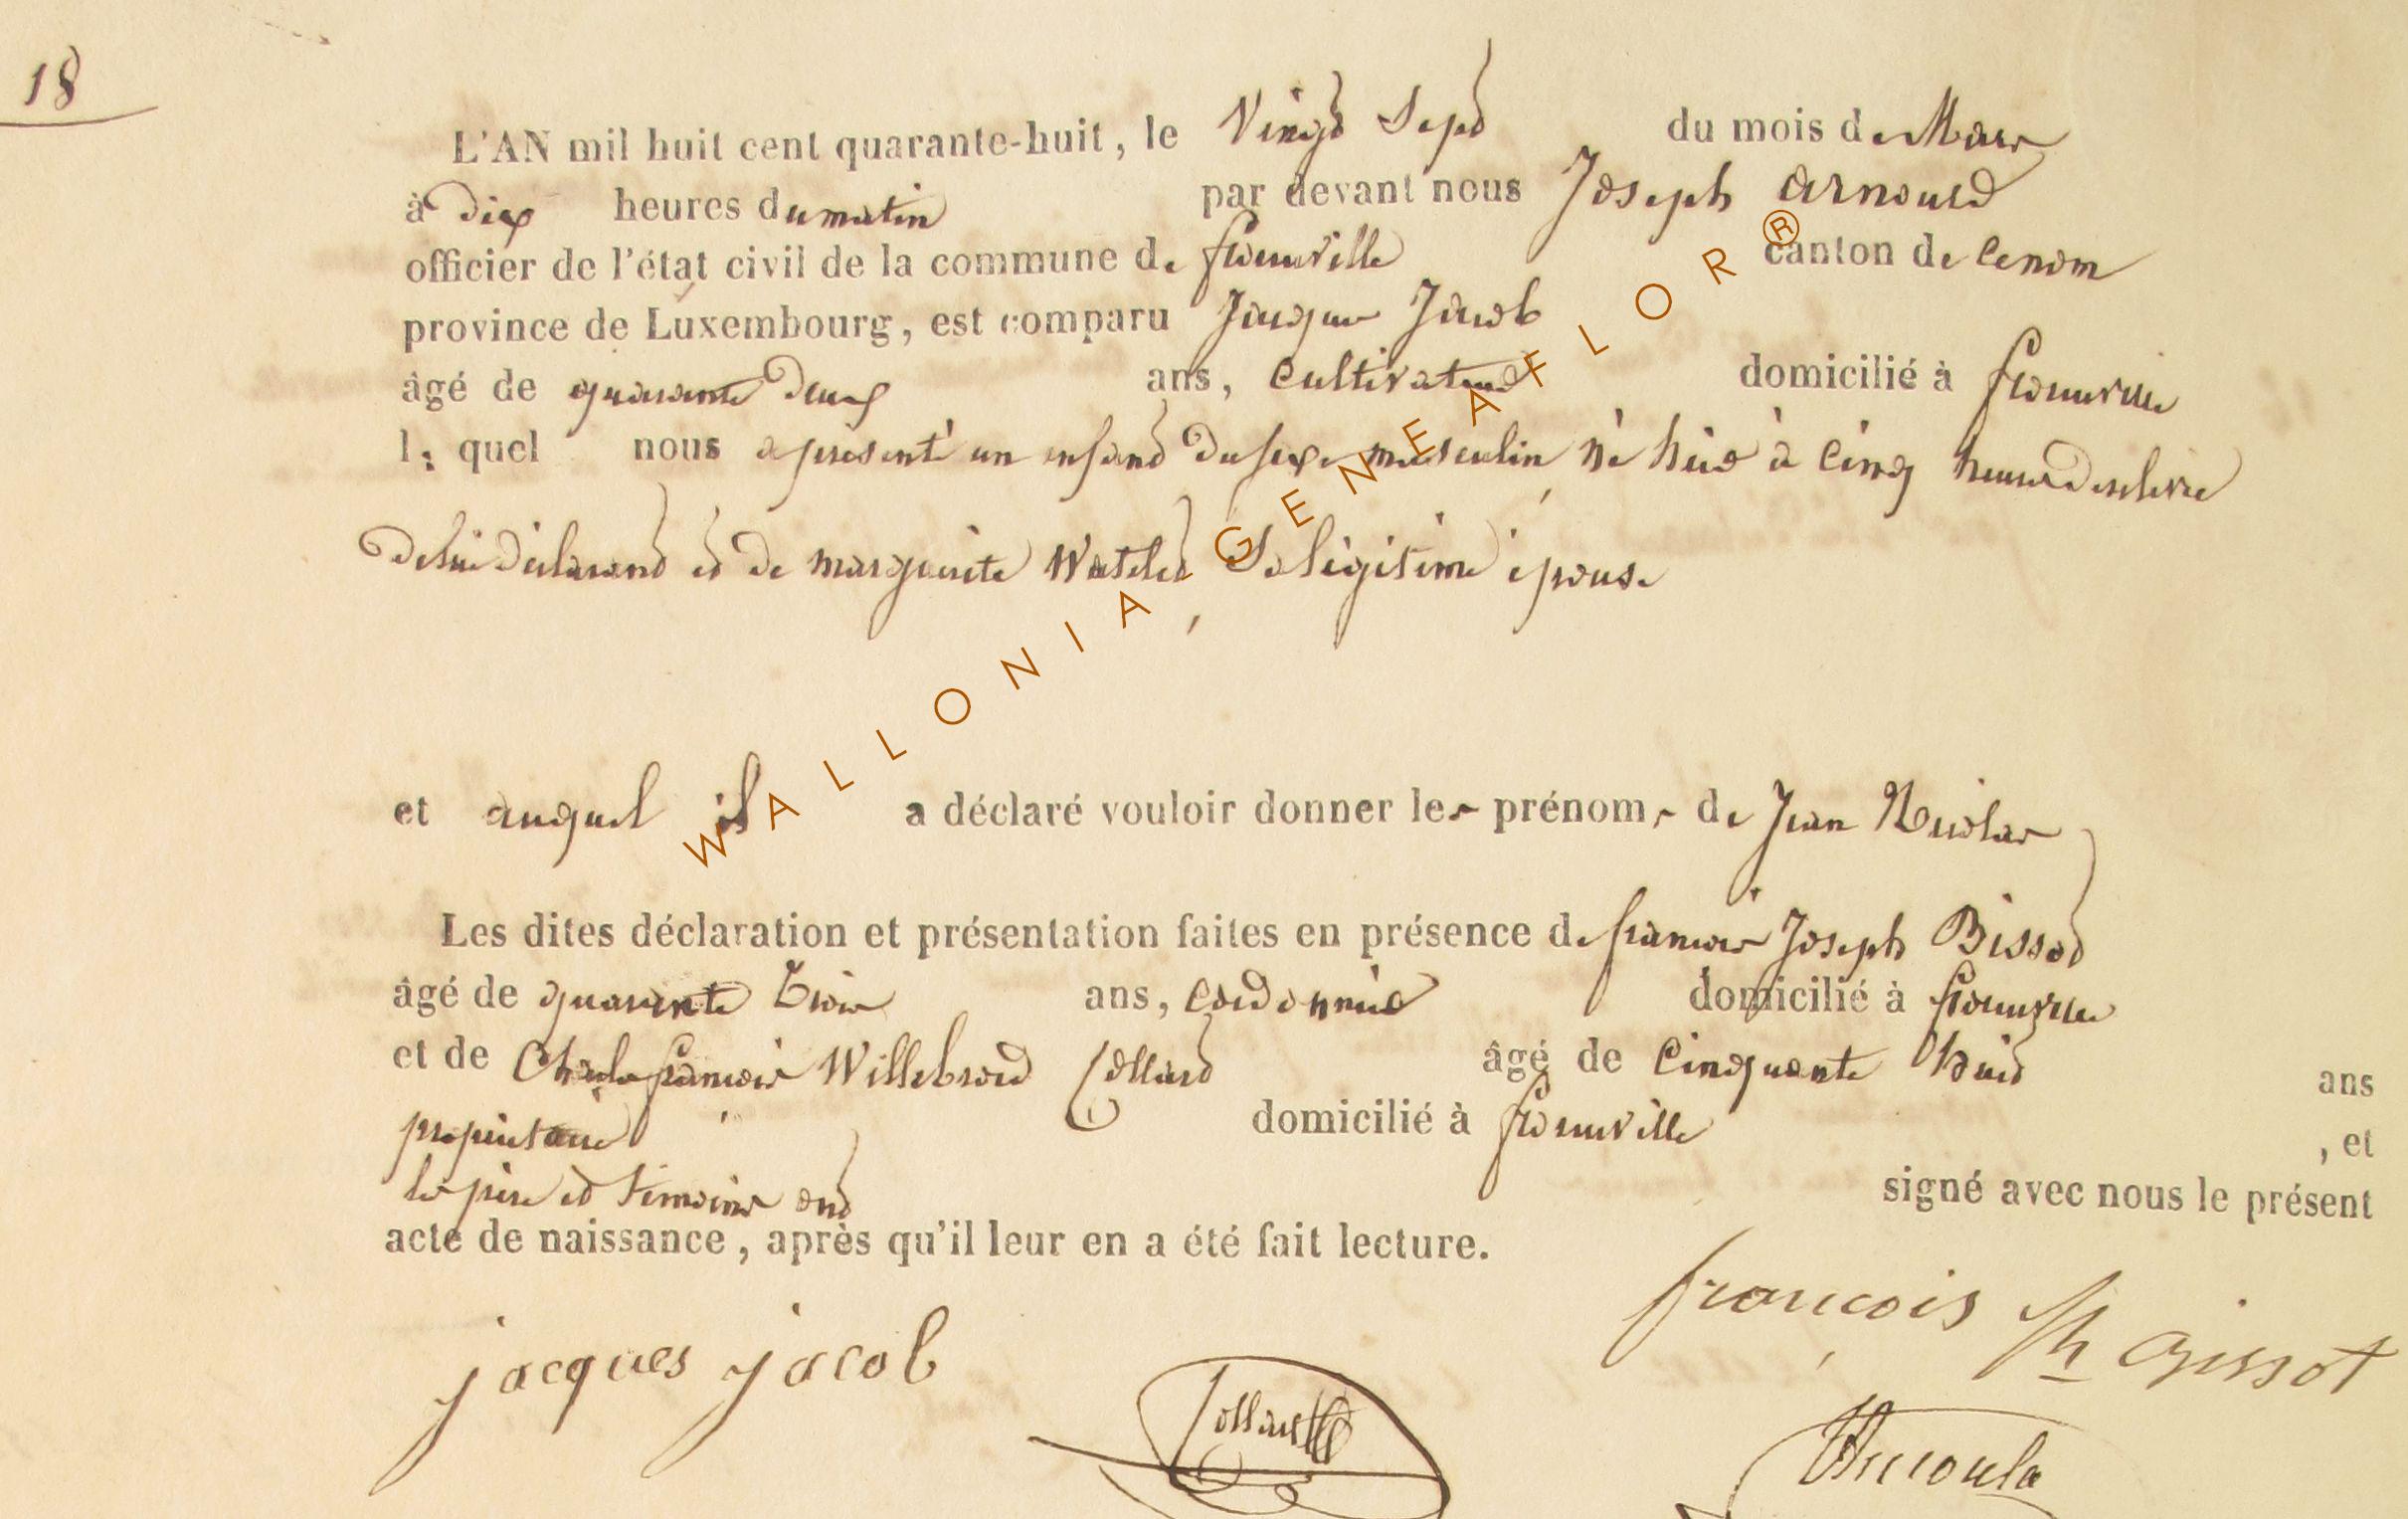 18
L'AN mil huit cent quarante-huit, le Vingt Sept du mois de Mars
à dix heures du matin par devant nous Joseph arnould
officier de l'état civil de la commune de florenville canton de Cenom
province de Luxembourg, est comparu Jacques Jacob
âgé de quarante deux ans, Cultivateur domicilié à florenville
le quel nous a présenté un enfant du sexe masculin né hier à Cinq heures
de lui déclarant et de marguerite Watelet Sa légitime épouse
et auquel il a déclaré vouloir donner les prénoms de Jean Nicolas
Les dites déclaration et présentation faites en présence de francois Joseph Bissot
âgé de quarante trois ans, cordonnier domicilié à florenville
et de Charles francois Willebrord Collard âgé de Cinquante huit ans
propriétaire domicilié à florenville , et
les père et témoins ont signé avec nous le présent
acte de naissance, après qu'il leur en a été fait lecture.
jacques jacob
francois Jh Bissot
Collard
WALLONIA GENEAFLOR ®